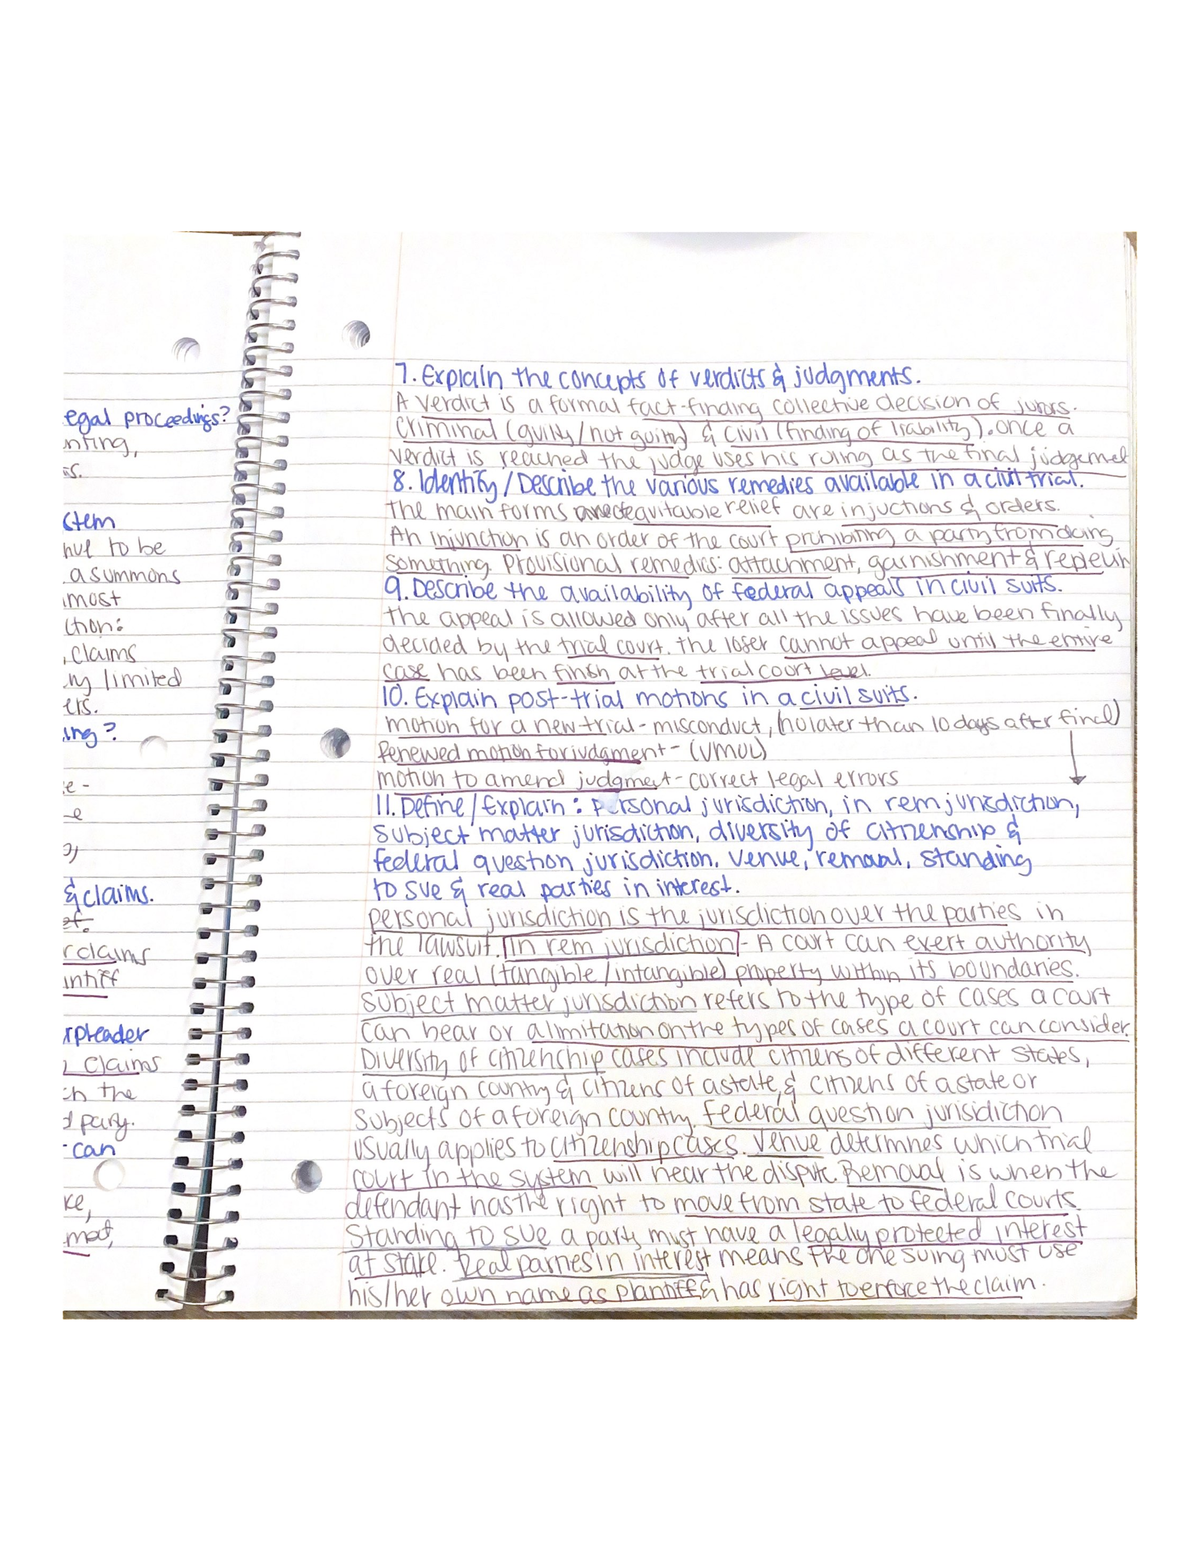 egal proceedings?
nting,
is.
stem
nut to be
a summons
most
ction:
, claims
ny limited
ers.
ing?
te -
e
o)
& claims.
r claims
intiff
rpleader
claims
ch the
d party.
- can
ke,
med,
7. Explain the concepts of verdicts & judgments.
A verdict is a formal fact-finding collective decision of jurors.
Criminal (guilty/not guilty) & civil (finding of liability). once a
verdict is reached the judge uses his ruling as the final judgemet
8. Identify/Describe the various remedies available in a civil trial.
The main forms equitable relief are injuctions & orders.
An injunction is an order of the court prohibiting a party from doing
something. Provisional remedies: attachment, garnishment & replevin
9. Describe the availability of federal appeals in civil suits.
The appeal is allowed only after all the issues have been finally
decided by the trial court. The loser cannot appeal until the entire
case has been finish at the trial court level.
10. Explain post-trial motions in a civil suits.
motion for a new trial - misconduct, (no later than 10 days after final)
Renewed motion for judgment - (JMOL)
motion to amend judgment - correct legal errors
11. Define/Explain: personal jurisdiction, in rem jurisdiction,
subject matter jurisdiction, diversity of citizenship &
federal question jurisdiction. Venue, removal, standing
to sue & real parties in interest.
personal jurisdiction is the jurisdiction over the parties in
the lawsuit. In rem jurisdiction - A court can exert authority
over real (tangible/intangible) property within its boundaries.
Subject matter jurisdiction refers to the type of cases a court
can hear or a limitation on the types of cases a court can consider.
Diversity of citizenship cases include citizens of different states,
a foreign country & citizens of a state, & citizens of a state or
subjects of a foreign country. Federal question jurisidiction
usually applies to citizenship cases. Venue determines which trial
court in the system will hear the dispute. Removal is when the
defendant has the right to move from state to federal courts.
Standing to sue a party must have a legally protected interest
at stake. Real parties in interest means the one suing must use
his/her own name as plaintiff & has right to enforce the claim.